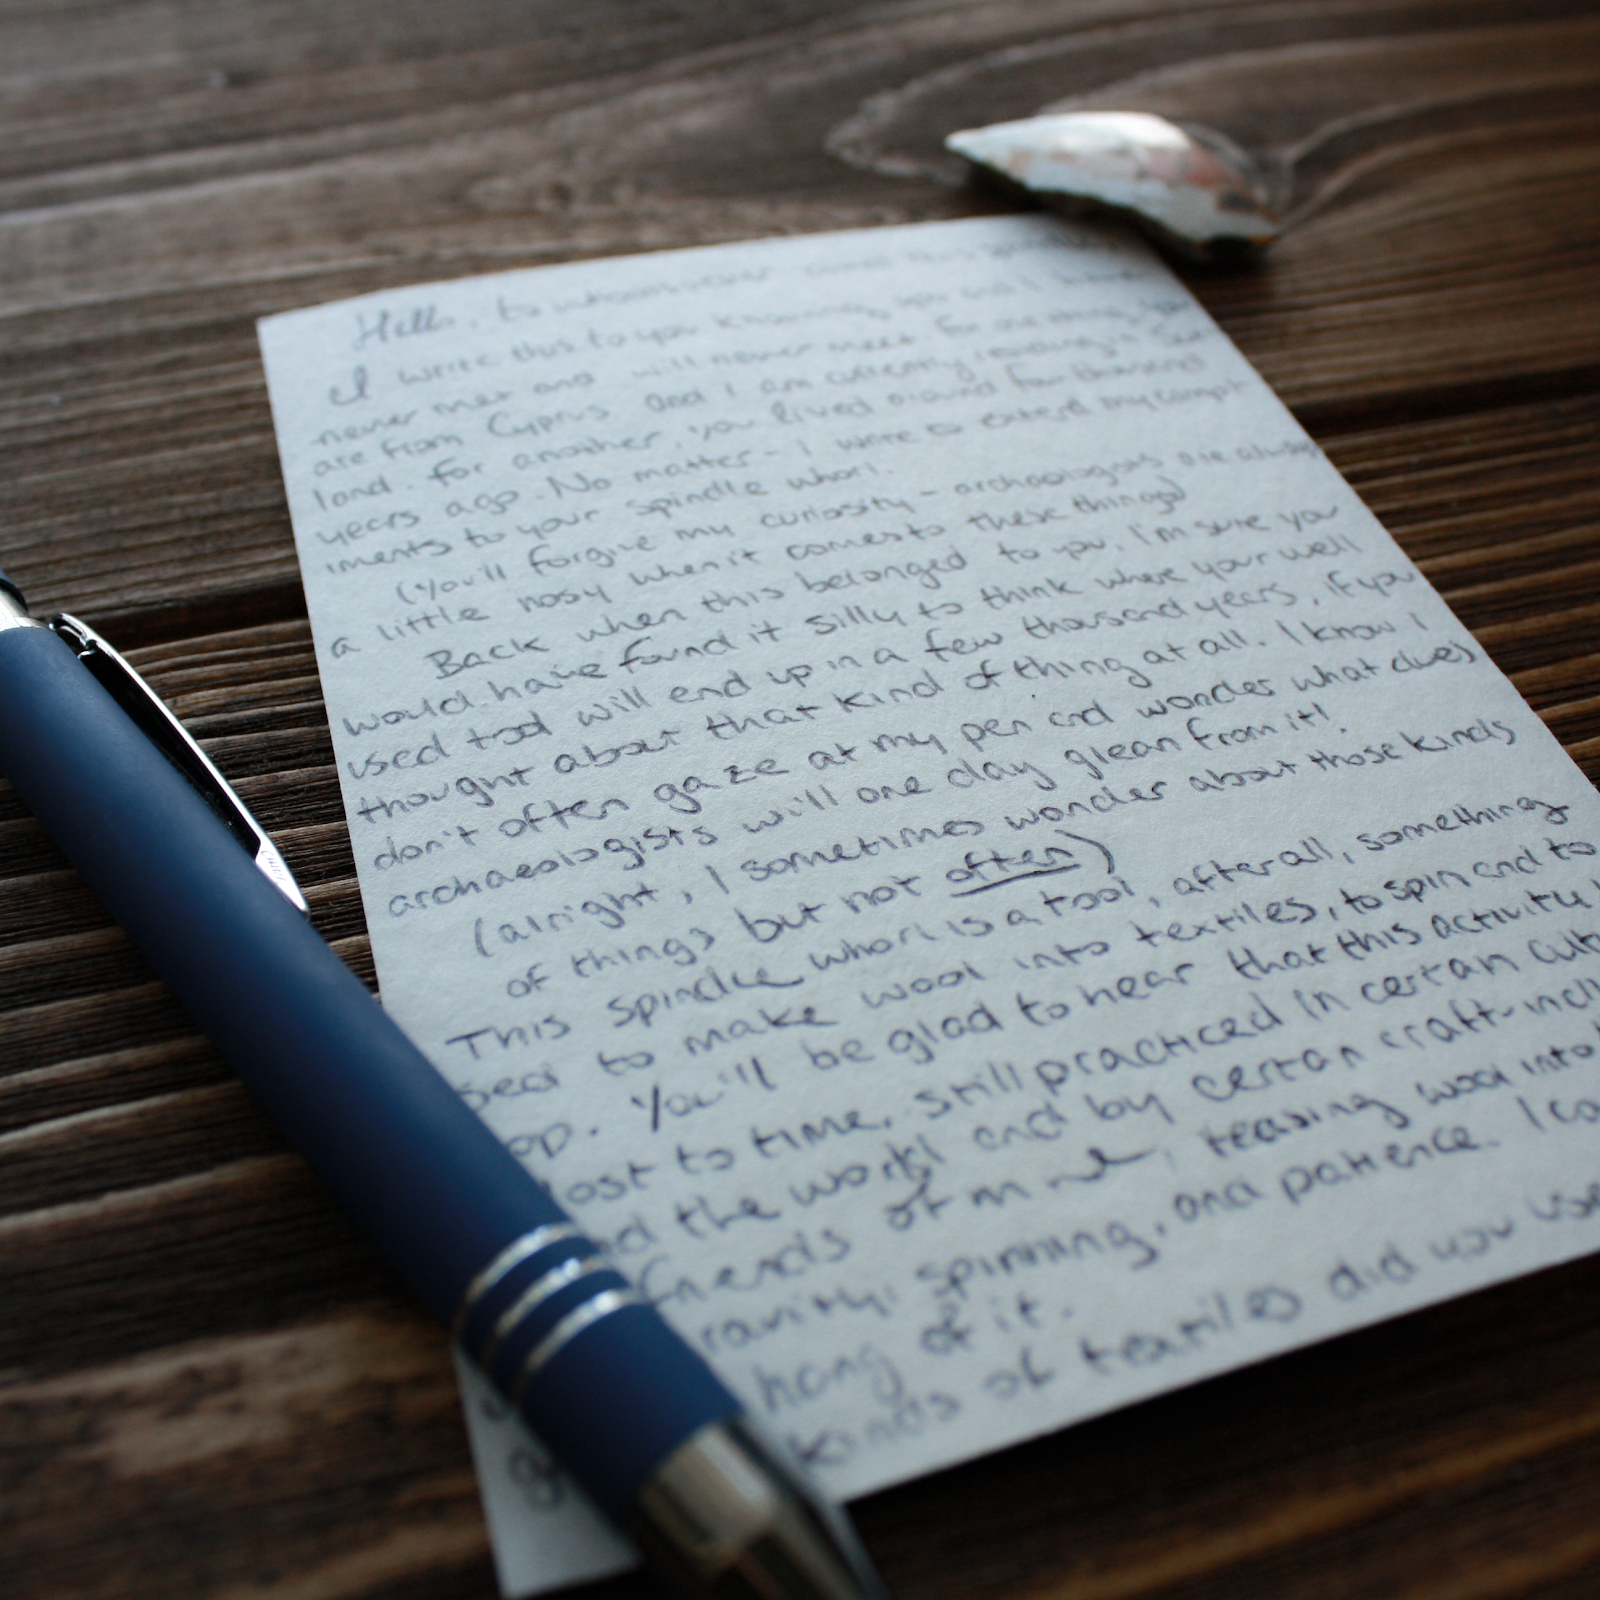 Hello, to whomsoever owned this spindle
I write this to you knowing you and I have
never met and will never meet. For one thing, you
are from Cyprus and I am currently residing in
land. For another, you lived around four thousand
years ago. No matter - I write to extend my compl
iments to your spindle whorl.
(You'll forgive my curiosity - archaeologists are always
a little nosy when it comes to these things)
Back when this belonged to you, I'm sure you
would have found it silly to think where your well
used tool will end up in a few thousand years, if you
thought about that kind of thing at all. I know I
don't often gaze at my pen and wonder what clues
archaeologists will one day glean from it!
(alright, I sometimes wonder about those kinds
of things but not often)
This spindle whorl is a tool, after all, something
sed to make wool into textiles, to spin and to
op. You'll be glad to hear that this activity
lost to time, still practiced in certan cult
d the world and by certan craft-incli
friends of mine, teasing wool into
ravity, spinning, and patience. I ca
hang of it.
kinds of textiles did you use